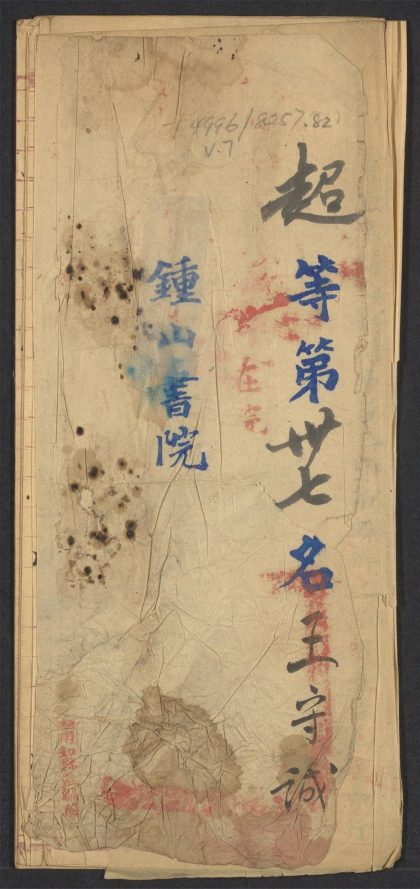 T 4996/8257.82
v.7
超等第卅七名王守誠
在完
鍾山書院